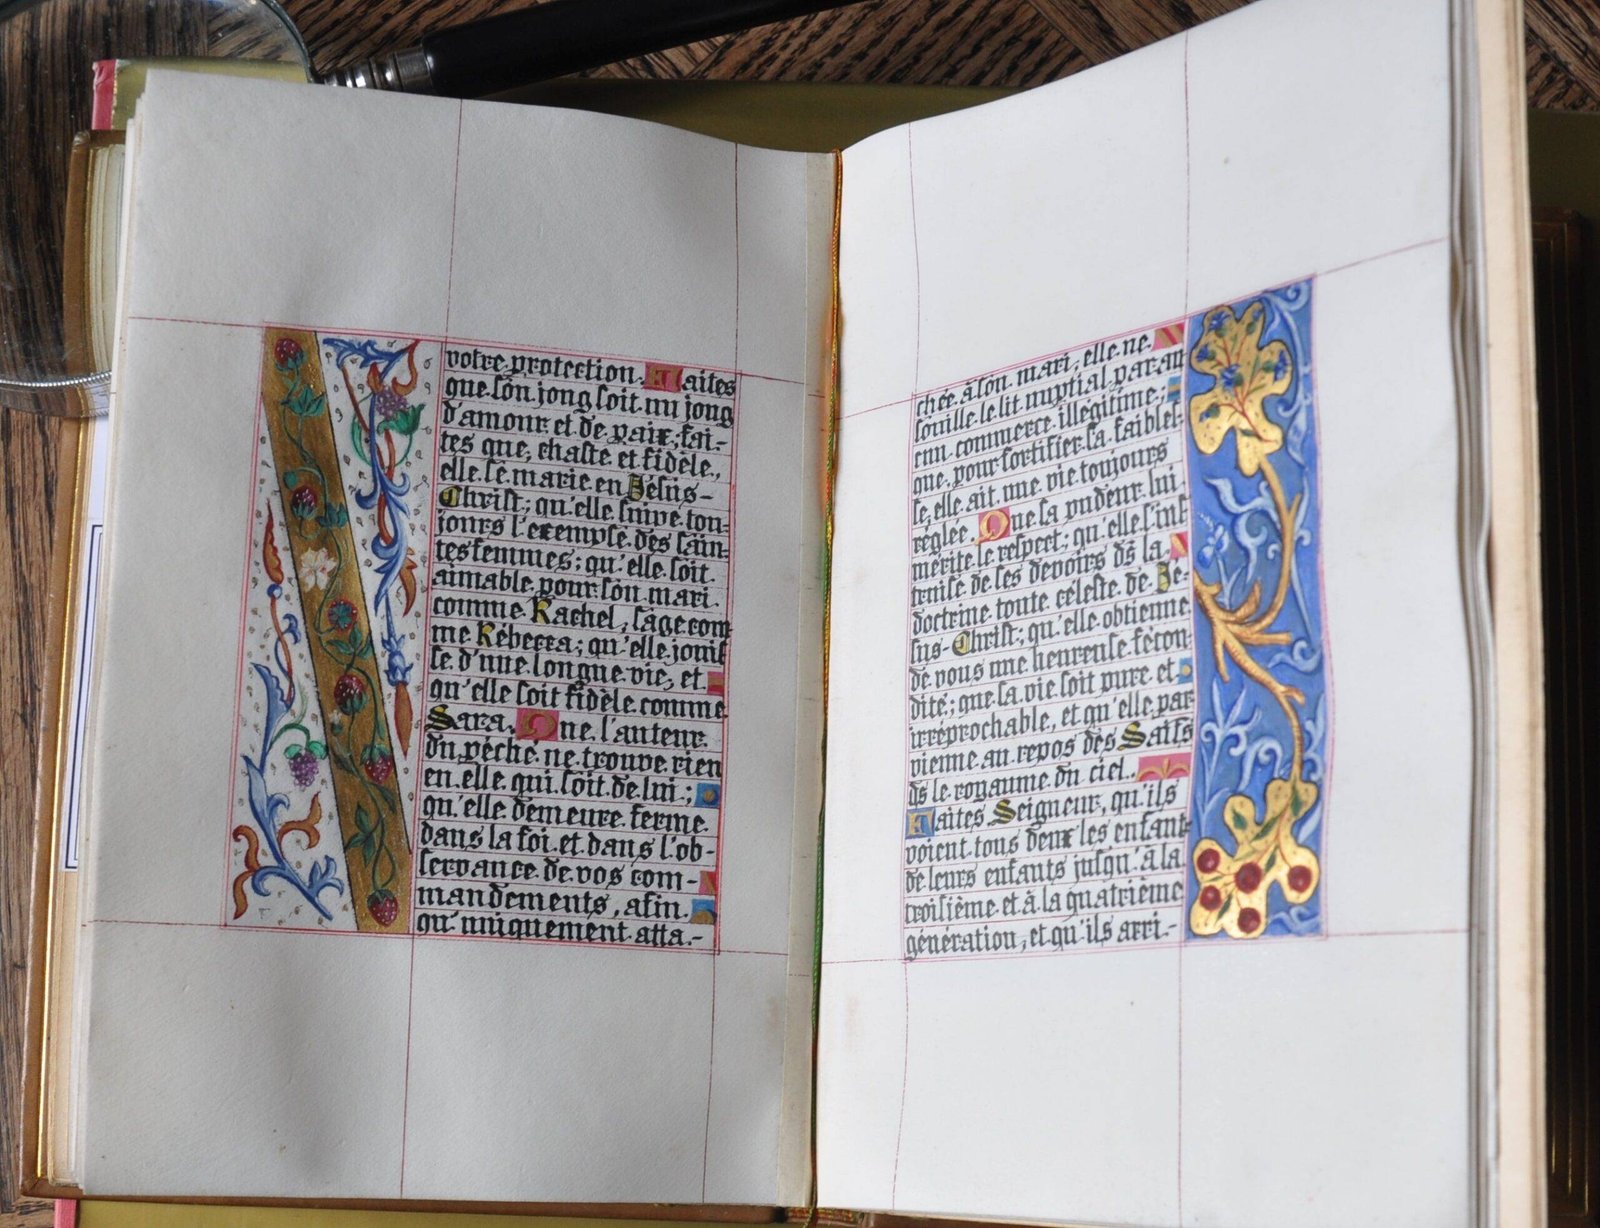 votre protection. Faites
que son joug soit un joug
d'amour et de paix; fai-
tes que, chaste et fidèle,
elle se marie en Jésus-
Christ; qu'elle suive tou-
jours l'exemple des sain-
tes femmes; qu'elle soit
aimable pour son mari
comme Rachel, sage com
me Rébecca; qu'elle jouis
se d'une longue vie, et
qu'elle soit fidèle comme
Sara. Que l'auteur
du péché ne trouve rien
en elle qui soit de lui;
qu'elle demeure ferme
dans la foi et dans l'ob-
servance de vos com-
mandements, afin
qu'uniquement atta-
chée à son mari, elle ne
souille le lit nuptial par au
cun commerce illégitime;
que, pour fortifier sa faibles
se, elle ait une vie toujours
réglée. Que sa pudeur lui
mérite le respect; qu'elle s'ins
truise de ses devoirs ds la
doctrine toute céleste de Jé-
sus-Christ; qu'elle obtienne
de vous une heureuse fécon
dité; que sa vie soit pure et
irréprochable, et qu'elle par
vienne au repos des Saits
ds le royaume du ciel.
Faites Seigneur, qu'ils
voient tous deux les enfant
de leurs enfants jusqu'à la
troisième et à la quatrième
génération, et qu'ils arri-